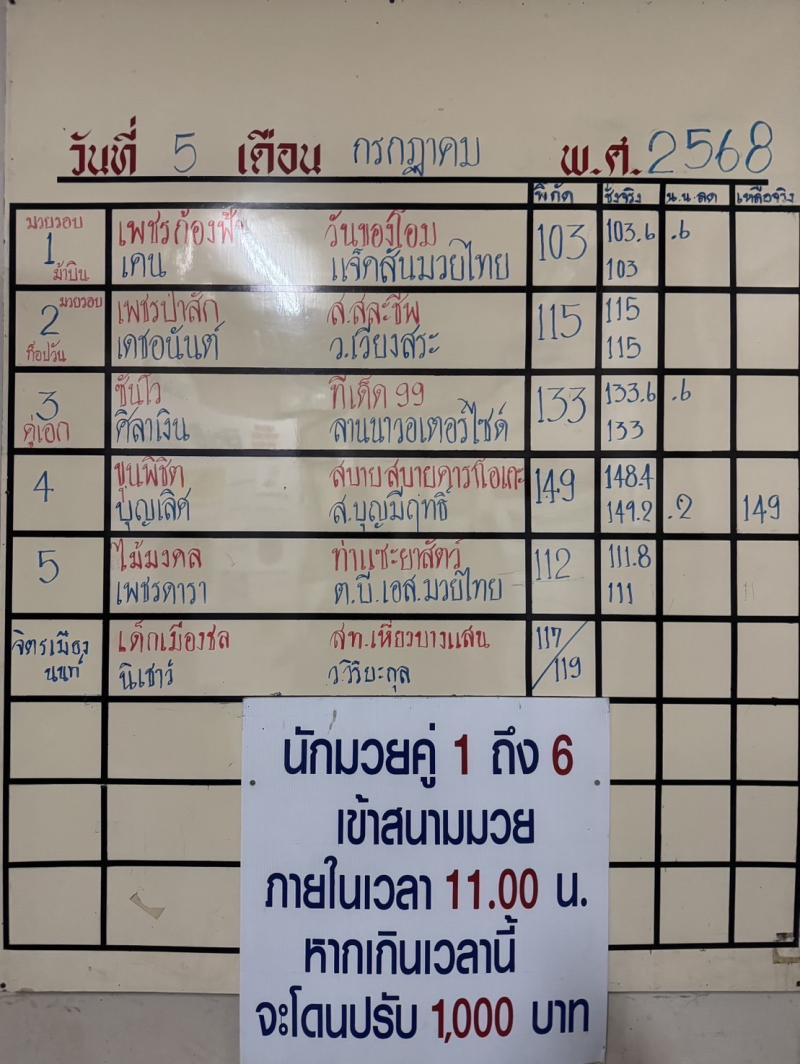 วันที่ 5 เดือน กรกฎาคม พ.ศ. 2568
พิกัด ชั่งจริง น.น.ลด เหลือจริง
มวยรอบ
1
ม้าบิน
เพชรก้องฟ้า วันของโอม 103 103.6 .6
เคน แจ็คสันมวยไทย 103
มวยรอบ
2
ท็อปวัน
เพชรป่าสัก ส.สละชีพ 115 115
เดชอนันต์ ว.เวียงสระ 115
3
คู่เอก
ซันโว ทีเด็ด 99 133 133.6 .6
ศิลาเงิน ลานนาวอเตอร์ไซด์ 133
4
ขุนพิชิต สบายสบายคาราโอเกะ 149 148.4
บุญเลิศ ส.บุญมีฤทธิ์ 149.2 .2 149
5
ไม้มงคล ท่าแซะยาสัตว์ 112 111.8
เพชรดารา ต.บี.เอส.มวยไทย 111
จิตรเมืองนนท์
เด็กเมืองชล สท.เหี่ยวบางแสน 117/119
นิเชาว์ ว.วิริยะกุล
นักมวยคู่ 1 ถึง 6
เข้าสนามมวย
ภายในเวลา 11.00 น.
หากเกินเวลานี้
จะโดนปรับ 1,000 บาท